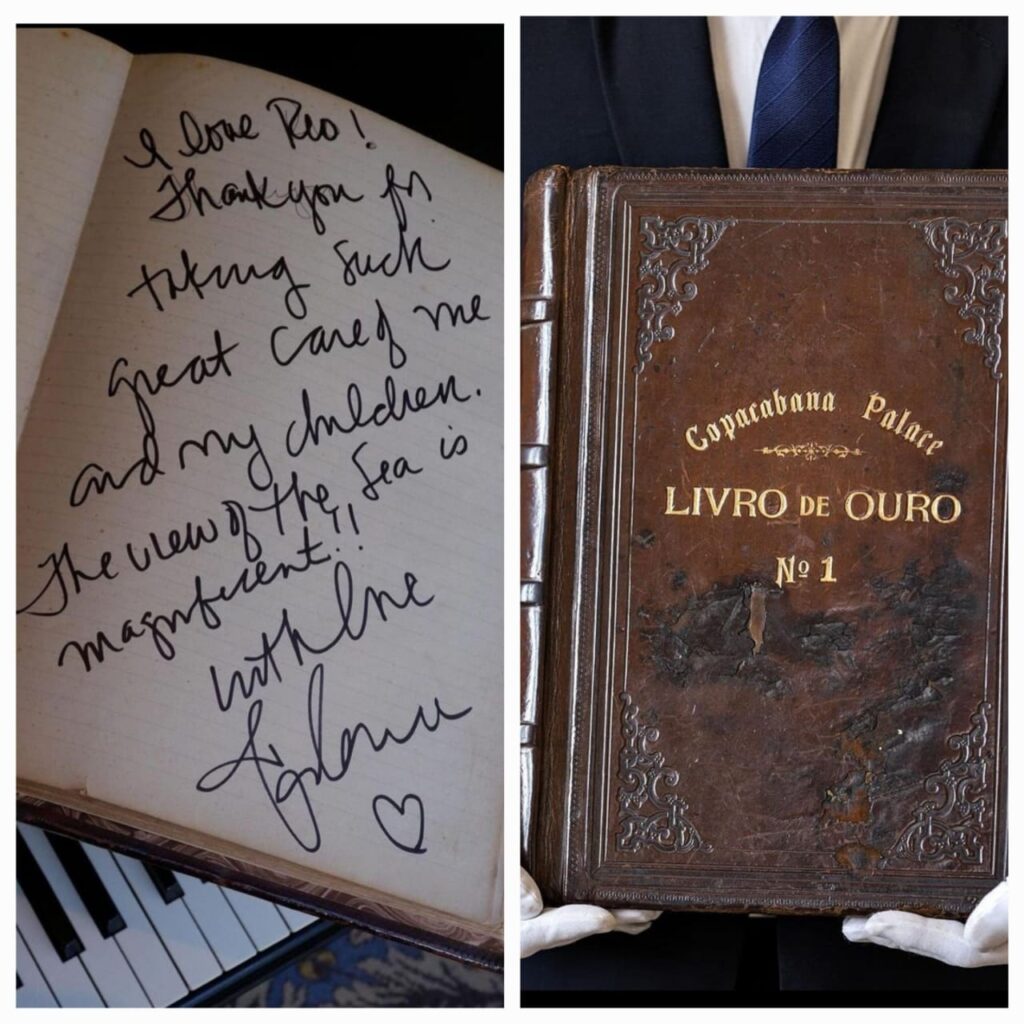 I love Rio!
Thank you for
taking such
great care of me
and my children.
The view of the Sea is
magnificent!!
with love
Copacabana Palace
LIVRO DE OURO
Nº 1